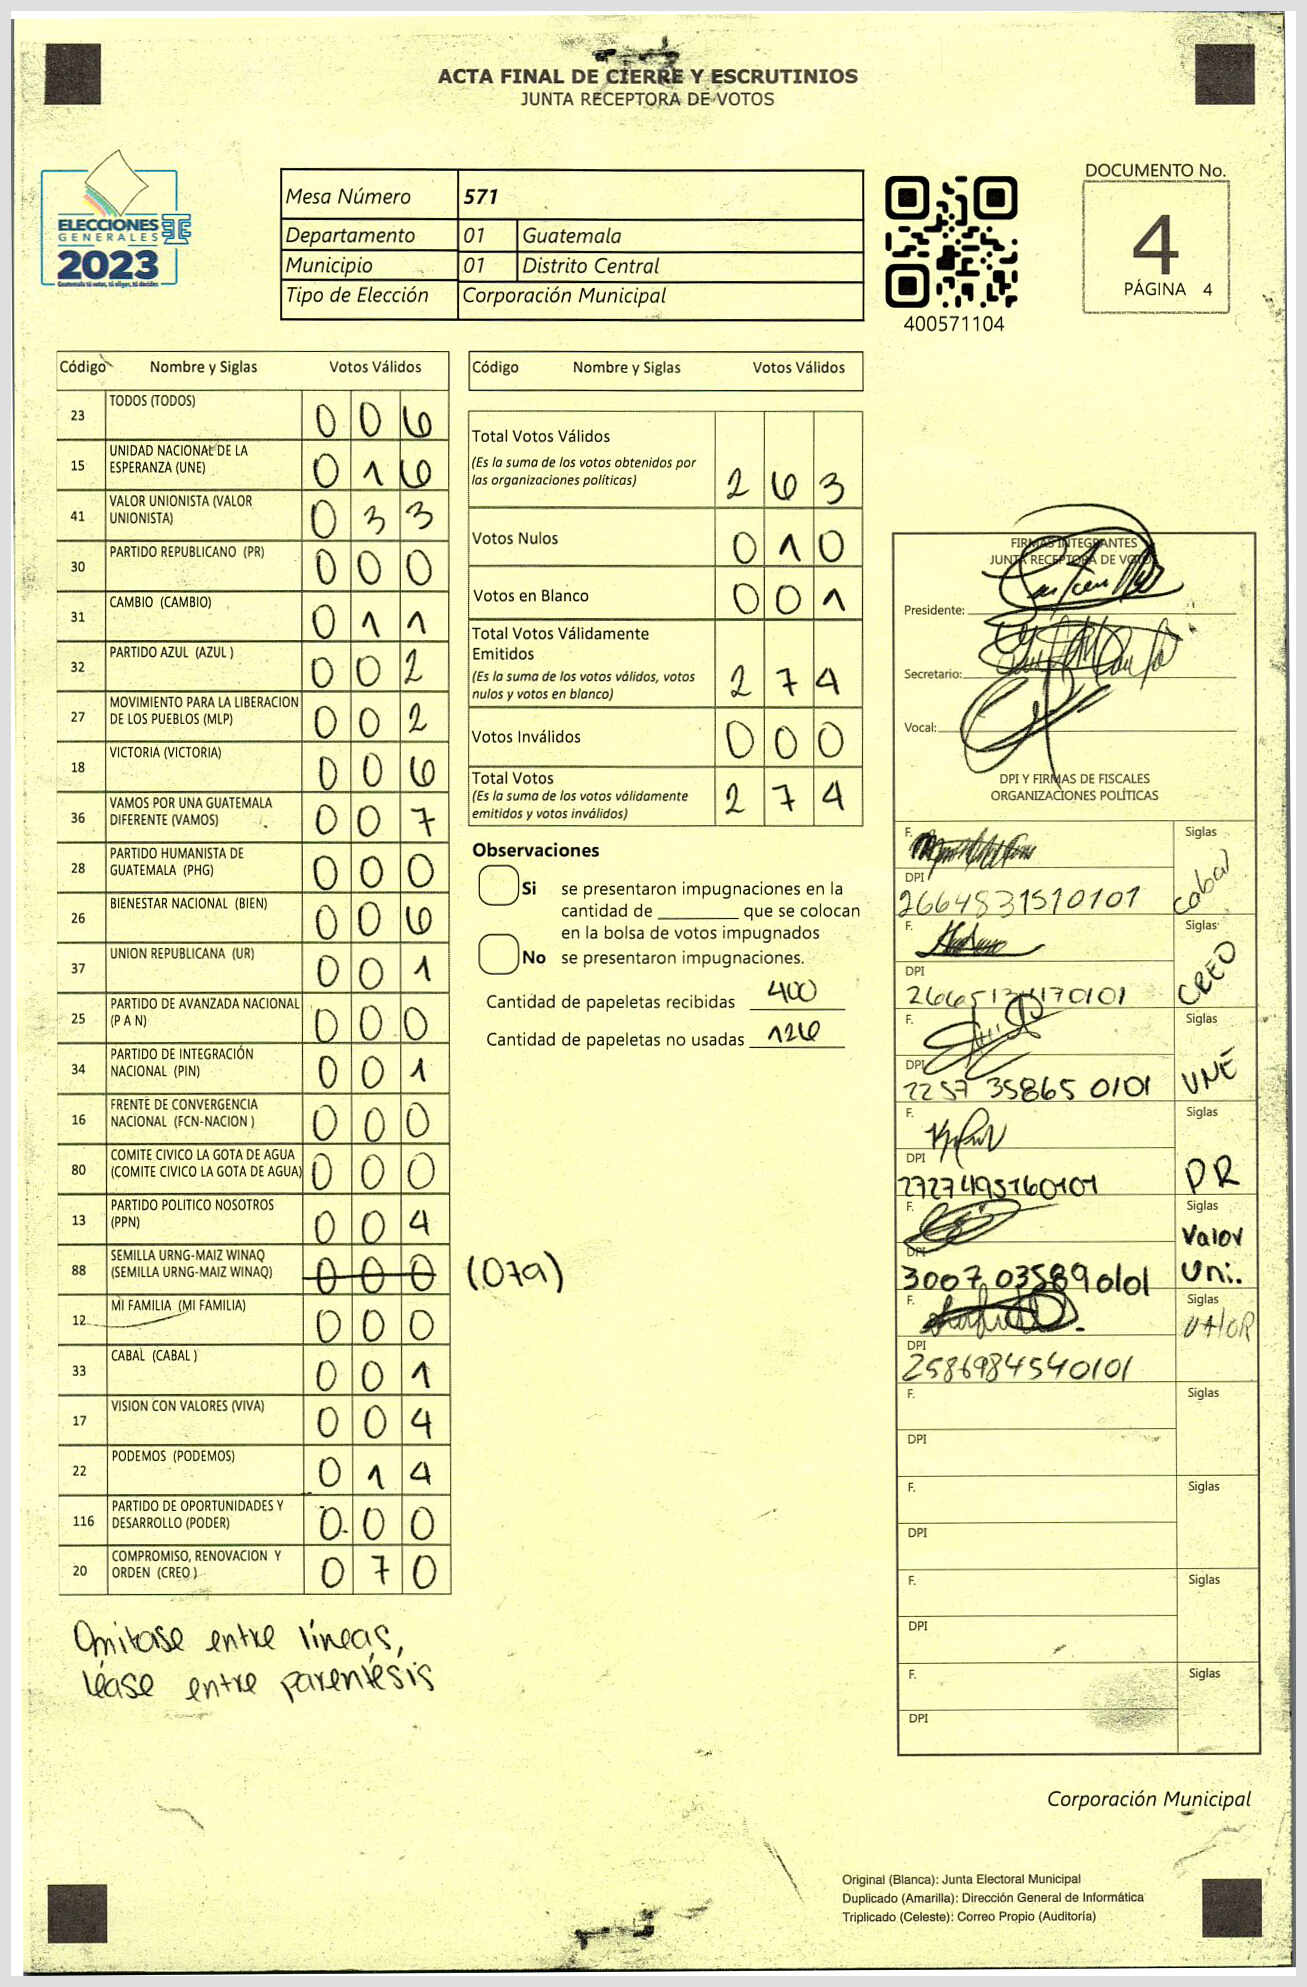 ACTA FINAL DE CIERRE Y ESCRUTINIOS
JUNTA RECEPTORA DE VOTOS
ELECCIONES
GENERALES
2023
Guatemala tú votas, tú eliges, tú decides
Mesa Número 571
Departamento 01 Guatemala
Municipio 01 Distrito Central
Tipo de Elección Corporación Municipal
400571104
DOCUMENTO No.
4
PÁGINA 4
Código Nombre y Siglas Votos Válidos
23 TODOS (TODOS) 0 0 6
15 UNIDAD NACIONAL DE LA ESPERANZA (UNE) 0 1 6
41 VALOR UNIONISTA (VALOR UNIONISTA) 0 3 3
30 PARTIDO REPUBLICANO (PR) 0 0 0
31 CAMBIO (CAMBIO) 0 1 1
32 PARTIDO AZUL (AZUL ) 0 0 2
27 MOVIMIENTO PARA LA LIBERACION DE LOS PUEBLOS (MLP) 0 0 2
18 VICTORIA (VICTORIA) 0 0 6
36 VAMOS POR UNA GUATEMALA DIFERENTE (VAMOS) 0 0 7
28 PARTIDO HUMANISTA DE GUATEMALA (PHG) 0 0 0
26 BIENESTAR NACIONAL (BIEN) 0 0 6
37 UNION REPUBLICANA (UR) 0 0 1
25 PARTIDO DE AVANZADA NACIONAL (P A N) 0 0 0
34 PARTIDO DE INTEGRACIÓN NACIONAL (PIN) 0 0 1
16 FRENTE DE CONVERGENCIA NACIONAL (FCN-NACION ) 0 0 0
80 COMITE CIVICO LA GOTA DE AGUA (COMITE CIVICO LA GOTA DE AGUA) 0 0 0
13 PARTIDO POLITICO NOSOTROS (PPN) 0 0 4
88 SEMILLA URNG-MAIZ WINAQ (SEMILLA URNG-MAIZ WINAQ) 0 0 0 (079)
12 MI FAMILIA (MI FAMILIA) 0 0 0
33 CABAL (CABAL ) 0 0 1
17 VISION CON VALORES (VIVA) 0 0 4
22 PODEMOS (PODEMOS) 0 1 4
116 PARTIDO DE OPORTUNIDADES Y DESARROLLO (PODER) 0 0 0
20 COMPROMISO, RENOVACION Y ORDEN (CREO ) 0 7 0
Omitase entre líneas,
léase entre parentésis
Código Nombre y Siglas Votos Válidos
Total Votos Válidos 2 6 3
(Es la suma de los votos obtenidos por
las organizaciones políticas)
Votos Nulos 0 1 0
Votos en Blanco 0 0 1
Total Votos Válidamente
Emitidos 2 7 4
(Es la suma de los votos válidos, votos
nulos y votos en blanco)
Votos Inválidos 0 0 0
Total Votos 2 7 4
(Es la suma de los votos válidamente
emitidos y votos inválidos)
Observaciones
Si se presentaron impugnaciones en la
cantidad de ________ que se colocan
en la bolsa de votos impugnados
No se presentaron impugnaciones.
Cantidad de papeletas recibidas 400
Cantidad de papeletas no usadas 126
FIRMAS INTEGRANTES
JUNTA RECEPTORA DE VOTOS
Presidente:
Secretario:
Vocal:
DPI Y FIRMAS DE FISCALES
ORGANIZACIONES POLÍTICAS
F. Siglas
DPI Cabal
2664831510101
F. Siglas
DPI CREO
F. Siglas
DPI UNE
2257 35865 0101
F. Siglas
DPI PR
2727495160101
F. Siglas
DPI Valor Uni.
3007 03589 0101
F. Siglas
DPI VALOR
2586984540101
F. Siglas
DPI
F. Siglas
DPI
F. Siglas
DPI
F. Siglas
DPI
Corporación Municipal
Original (Blanca): Junta Electoral Municipal
Duplicado (Amarilla): Dirección General de Informática
Triplicado (Celeste): Correo Propio (Auditoría)